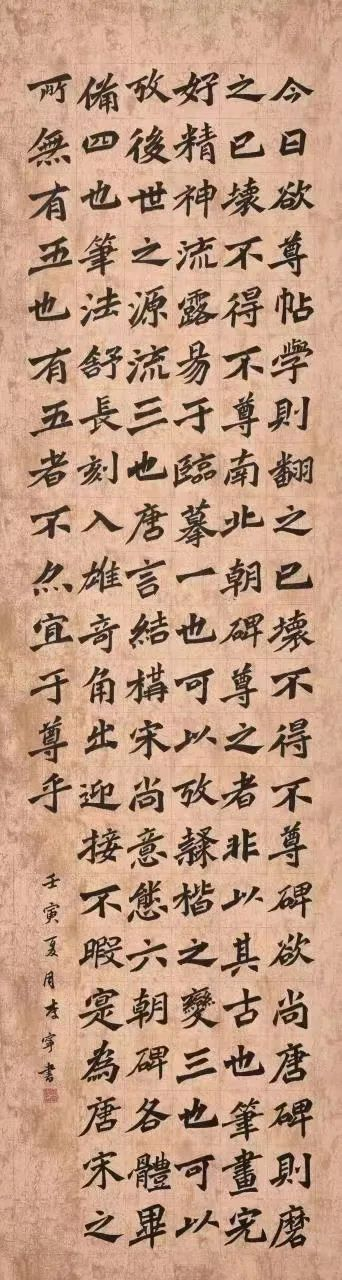 今日欲尊帖学則翻之已壞不得不尊碑欲尚唐碑則磨
之已壞不得不尊南北朝碑尊之者非以其古也筆畫完
好精神流露易于臨摹一也可以攷隸楷之變三也可以
攷後世之源流三也唐言結構宋尚意態六朝碑各體畢
備四也筆法舒長刻入雄奇角出迎接不暇寔為唐宋之
所無有五也有五者不亦宜于尊乎
壬寅夏月李宁書